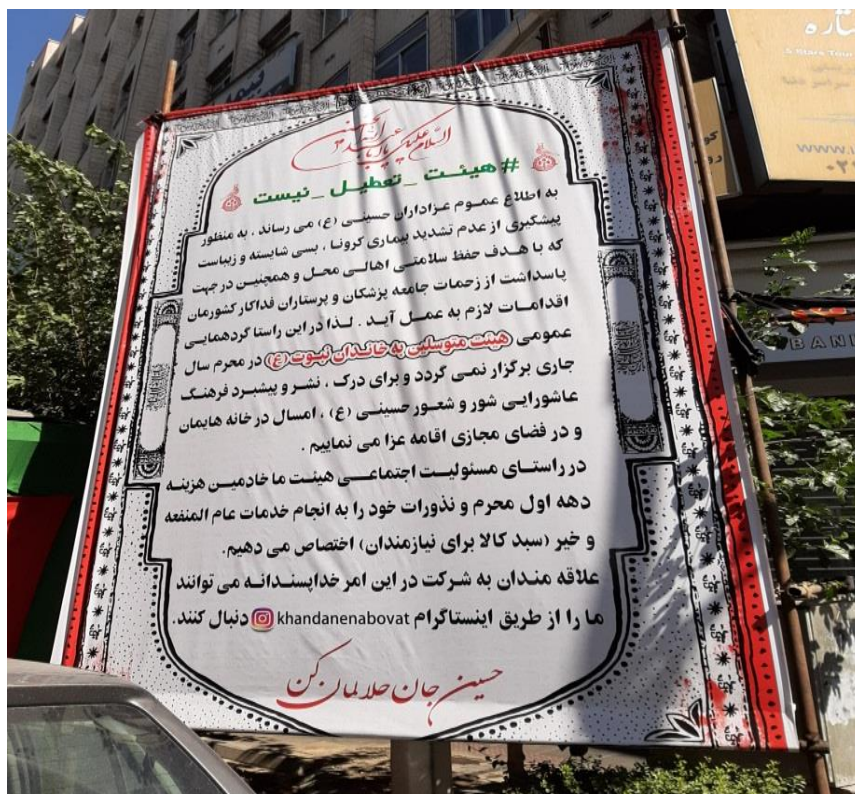 السلام علیک یا ابا عبدالله الحسین
#هیئت_تعطیل_نیست
به اطلاع عموم عزاداران حسینی (ع) می رساند ، به منظور
پیشگیری از عدم تشدید بیماری کرونا ، بسی شایسته و زیباست
که با هدف حفظ سلامتی اهالی محل و همچنین در جهت
پاسداشت از زحمات جامعه پزشکان و پرستاران فداکار کشورمان
اقدامات لازم به عمل آید . لذا در این راستا گردهمایی
عمومی هیئت متوسلین به خاندان نبوت (ع) در محرم سال
جاری برگزار نمی گردد و برای درک ، نشر و پیشبرد فرهنگ
عاشورایی شور و شعور حسینی (ع) ، امسال در خانه هایمان
و در فضای مجازی اقامه عزا می نماییم .
در راستای مسئولیت اجتماعی هیئت ما خادمین هزینه
دهه اول محرم و نذورات خود را به انجام خدمات عام المنفعه
و خیر (سبد کالا برای نیازمندان) اختصاص می دهیم.
علاقه مندان به شرکت در این امر خداپسندانه می توانند
ما را از طریق اینستاگرام khandanenabovat دنبال کنند.
حسین جان حلالمان کن
ستاره
www.
BAN